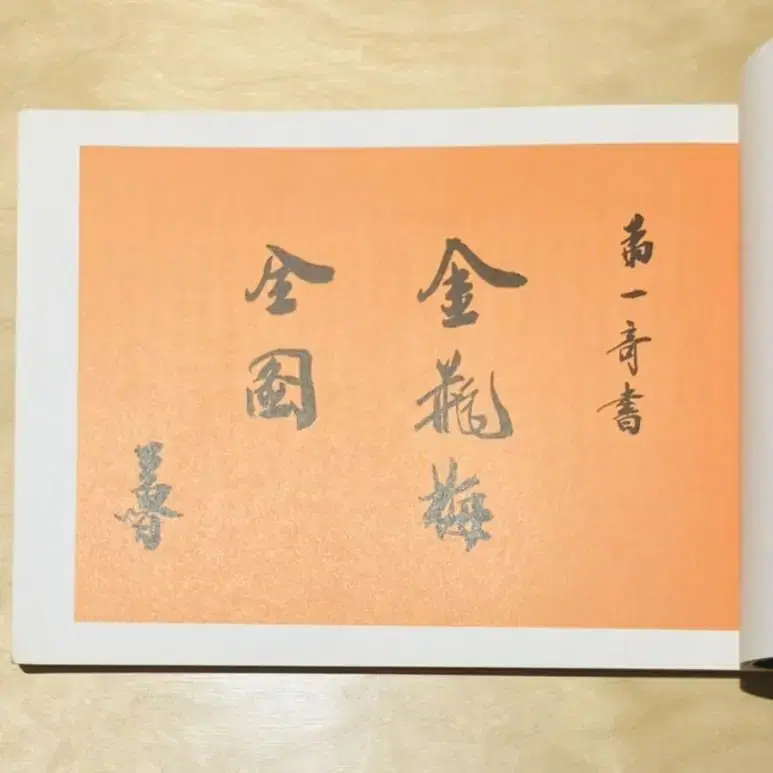 第一奇書
金瓶梅
全圖